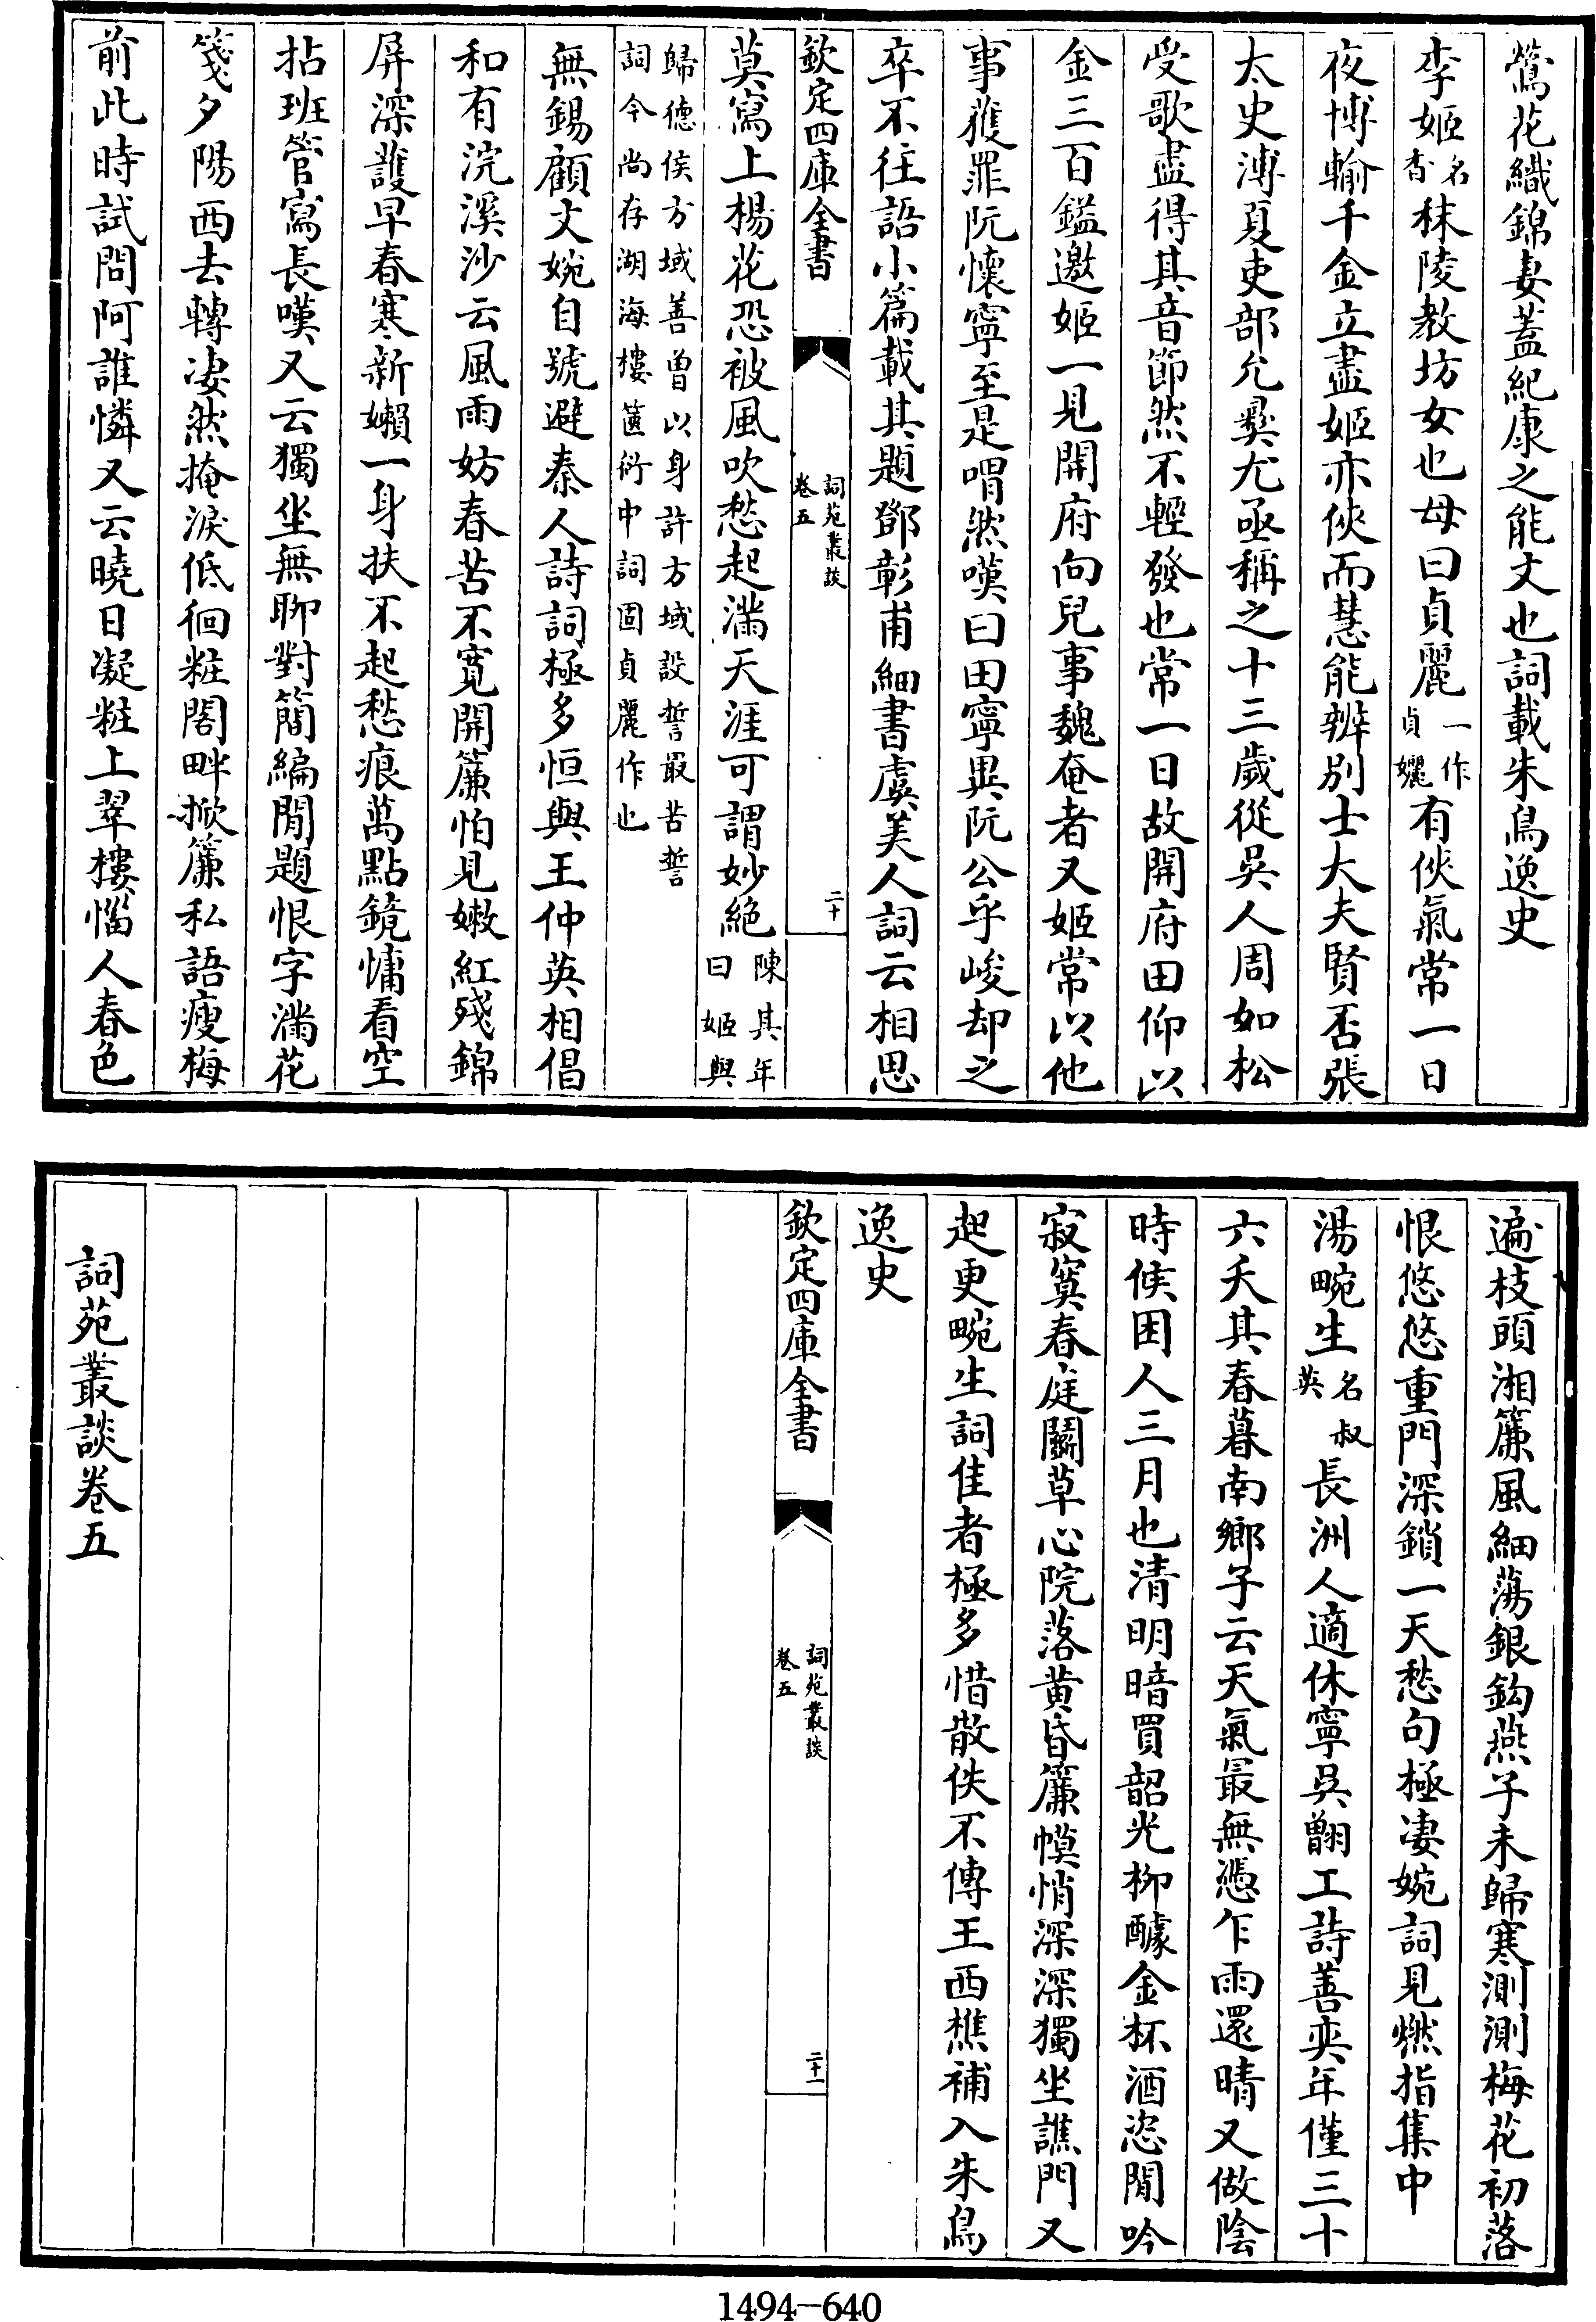 鶯花織錦妻蓋紀康之能文也詞載朱鳥逸史
李姬名香秣陵教坊女也母曰貞麗一作貞孋有俠氣常一日
夜博輸千金立盡姬亦俠而慧能辨别士大夫賢否張
太史溥夏吏部允彞尤亟稱之十三歲從吳人周如松
受歌盡得其音節然不輕發也常一日故開府田仰以
金三百鎰邀姬一見開府向兒事魏奄者又姬常以他
事獲罪阮懷寧至是喟然嘆曰田寧異阮公乎峻却之
卒不往語小篇載其題鄧彰甫細書虞美人詞云相思
欽定四庫全書
詞苑叢談
卷五
二十
莫寫上楊花恐被風吹愁起滿天涯可謂妙絶陳其年曰姬與
歸德侯方域善曾以身許方域設誓最苦誓
詞今尚存湖海樓篋衍中詞固貞麗作也
無錫顧文婉自號避秦人詩詞極多恒與王仲英相倡
和有浣溪沙云風雨妨春苦不寛開簾怕見嫩紅殘錦
屏深護早春寒新嬾一身扶不起愁痕萬點鏡慵看空
拈班管寫長嘆又云獨坐無聊對簡編閒題恨字滿花
箋夕陽西去轉凄然掩淚低徊粧閣畔掀簾私語瘦梅
前此時試問阿誰憐又云曉日凝粧上翠樓惱人春色
遍枝頭湘簾風細蕩銀鈎燕子未歸寒測測梅花初落
恨悠悠重門深鎖一天愁句極凄婉詞見燃指集中
湯畹生名叔英長洲人適休寧吳翿工詩善奕年僅三十
六夭其春暮南鄉子云天氣最無憑乍雨還晴又做陰
時候困人三月也清明暗買韶光柳醵金杯酒恣閒吟
寂寞春庭鬭草心院落黄昏簾幙悄深深獨坐譙門又
起更畹生詞佳者極多惜散佚不傳王西樵補入朱鳥
逸史
欽定四庫全書
詞苑叢談
卷五
二十一
詞苑叢談卷五
1494-640